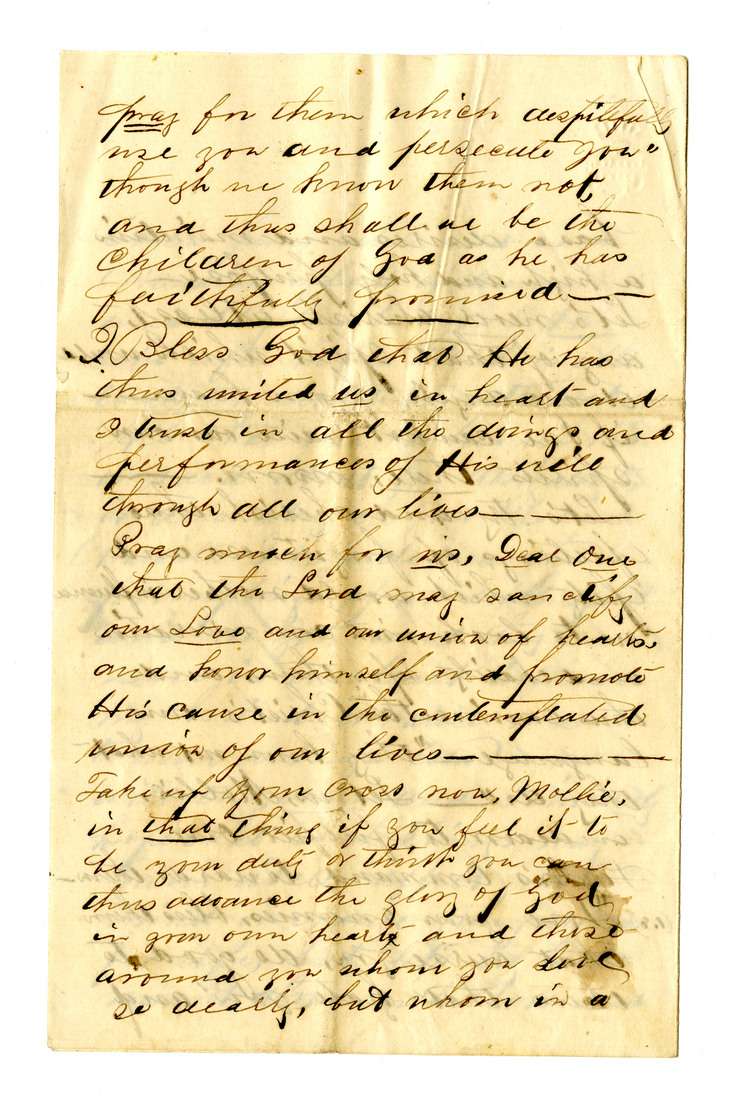 pray for them which despitefully
use you and persecute you"
though we know them not,
and thus shall we be the
Children of God as he has
faithfully promised — —
I Bless God that He has
thus united us in heart and
I trust in all the doings and
performances of His will
through all our lives — —
Pray much for us, Dear One
that the Lord may sanctify
our Love and our union of hearts
and honor himself and promote
His cause in the contemplated
union of our lives — — —
Take up your Cross now, Mollie,
in that thing if you feel it to
be your duty or think you can
thus advance the glory of God
in your own hearts and those
around you whom you love
so dearly, but whom in a